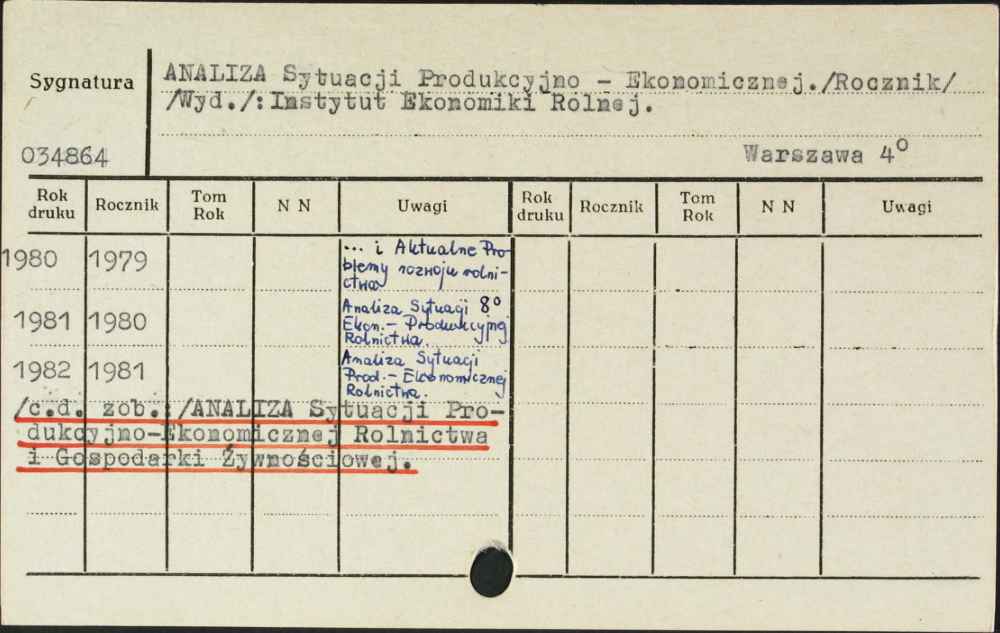 Sygnatura
ANALIZA Sytuacji Produkcyjno - Ekonomicznej./Rocznik/
/Wyd./:Instytut Ekonomiki Rolnej.
034864
Warszawa 4°
Rok druku Rocznik Tom Rok N N Uwagi Rok druku Rocznik Tom Rok N N Uwagi
1980 1979 ... i Aktualne Pro-
blemy rozwoju rolni-
ctwa
1981 1980 Analiza Sytuacji 8°
Ekon.- Produkcyjnej
Rolnictwa.
1982 1981 Analiza Sytuacji
Prod.- Ekonomicznej
Rolnictwa.
/c.d. zob.:/ANALIZA Sytuacji Pro-
dukcyjno-Ekonomicznej Rolnictwa
i Gospodarki Żywnościowej.